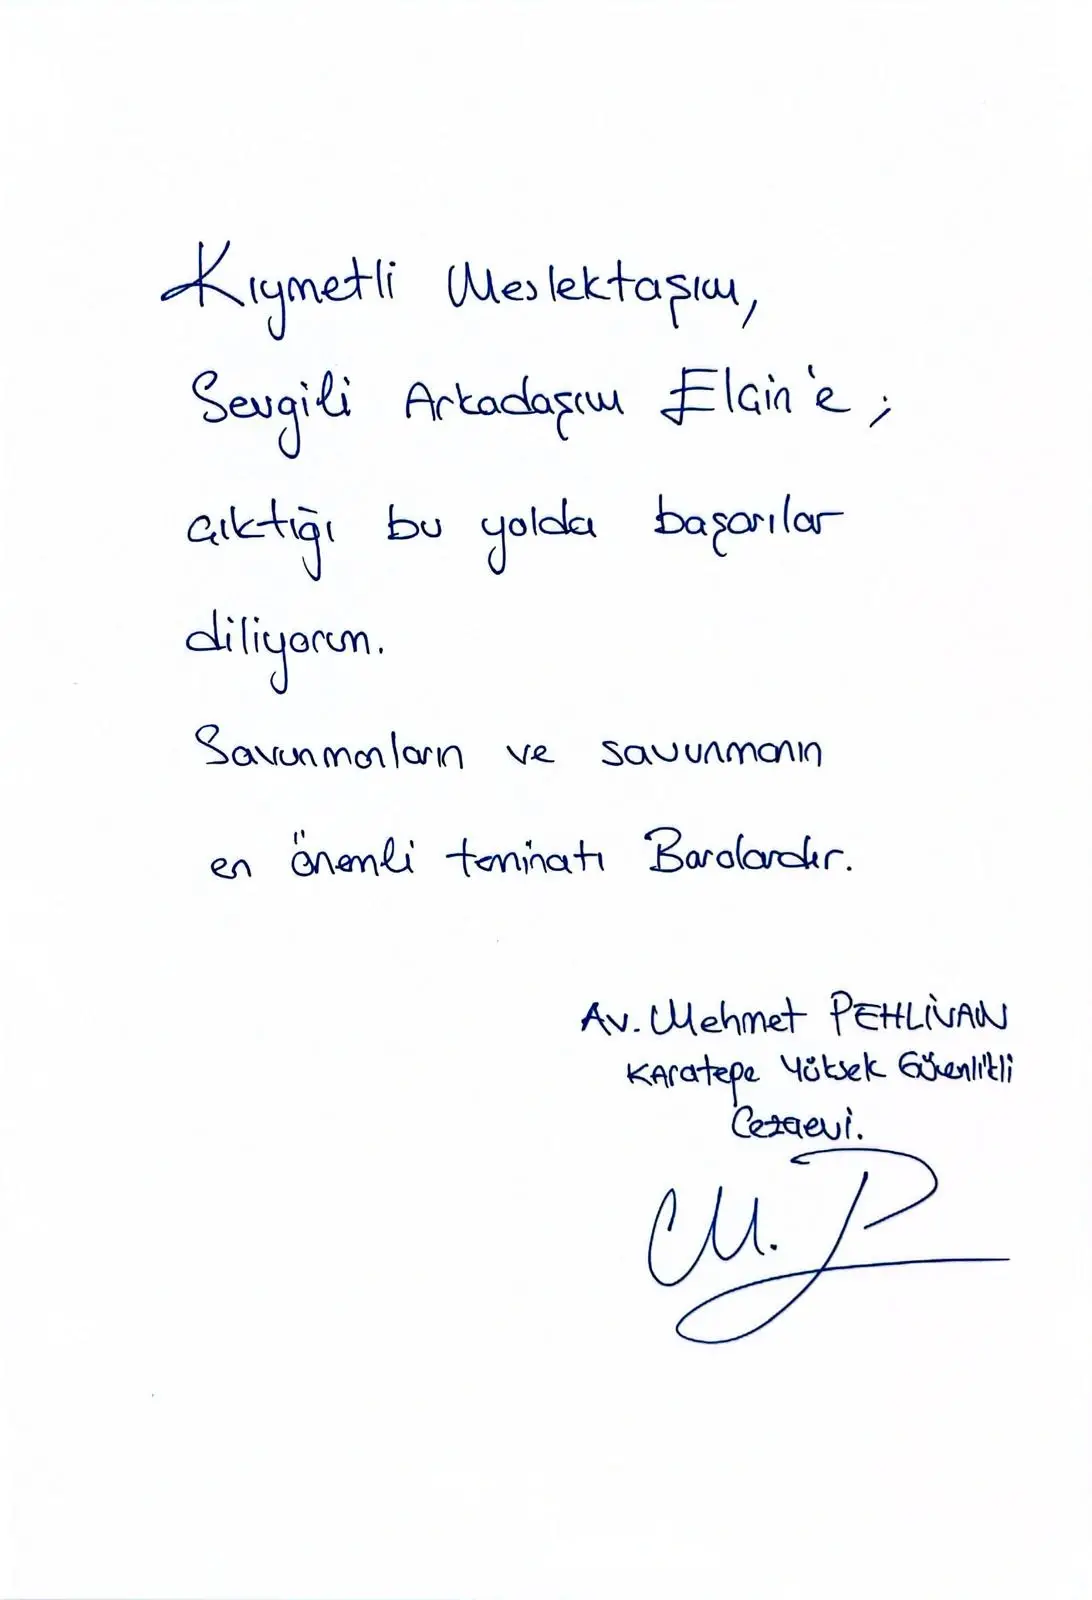 Kıymetli Meslektaşım,
Sevgili Arkadaşım Elçin'e;
çıktığı bu yolda başarılar
diliyorum.
Savunmanların ve savunmanın
en önemli teminatı Barolardır.
Av. Mehmet PEHLİVAN
Karatepe Yüksek Güvenlikli
Cezaevi.
M.P